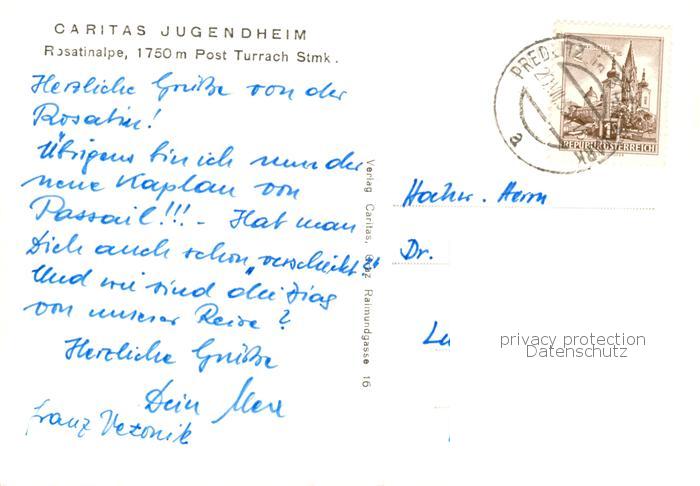 CARITAS JUGENDHEIM
Rosatinalpe, 1750 m Post Turrach Stmk.
Herzliche Grüße von der
Rosatin!
Übrigens bin ich nun der
neue Kaplan von
Passail!!! - Hat man
Dich auch schon „verschickt"?
Und wie sind die Diag
von unserer Reise?
Herzliche Grüße
Dein
Franz
Verlag Caritas, Graz, Raimundgasse 16
REPUBLIK ÖSTERREICH
a
Hochw. Herrn
Dr.
privacy protection
Datenschutz